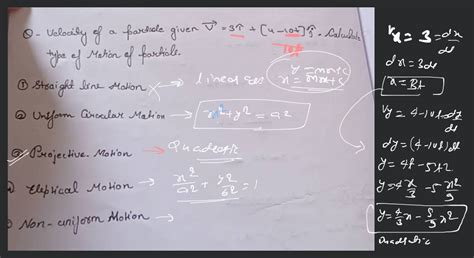 Q- Velocity of a particle given V = 3î + [4-10t]ĵ. Calculate
10t
type of Motion of particle.
① Straight line Motion → linear eqs
y = mx+c
x = my+c
② Uniform Circular Motion → x²+y² = a²
Projective Motion → Quadratic
Eleptical Motion → x²/a² + y²/b² = 1
Non-uniform Motion
Vx = 3 = dx/dt
dx = 3dt
x = 3t
Vy = 4-10t = dy/dt
dy = (4-10t)dt
y = 4t - 5t²
y = 4x/3 - 5x²/9
y = 4/3x - 5/9x²
Quadratic